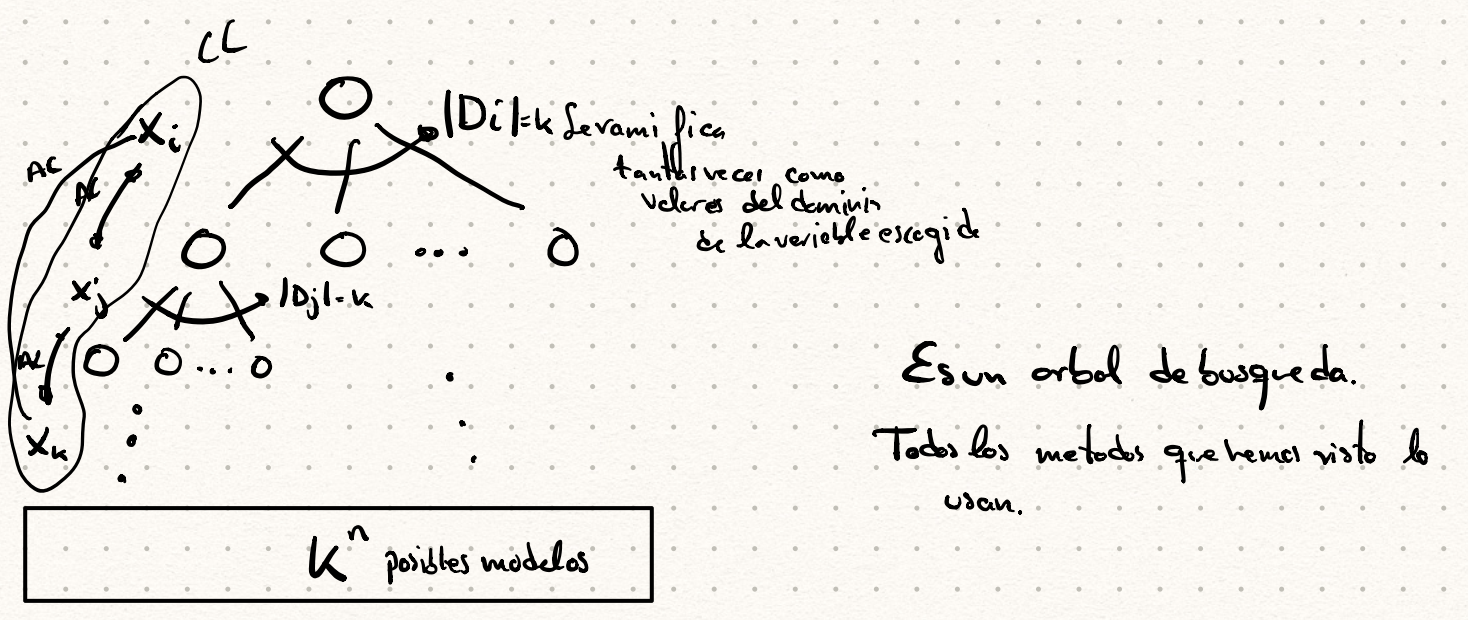 CL
Xi
|Di|=k Se ramifica
tantas veces como
valores del dominio
de la variable escogida
AC
AC
Xj
|Dj|=k
...
AC
...
Xk
Es un arbol de busqueda.
Todos los metodos que hemos visto lo
usan.
K^n posibles modelos